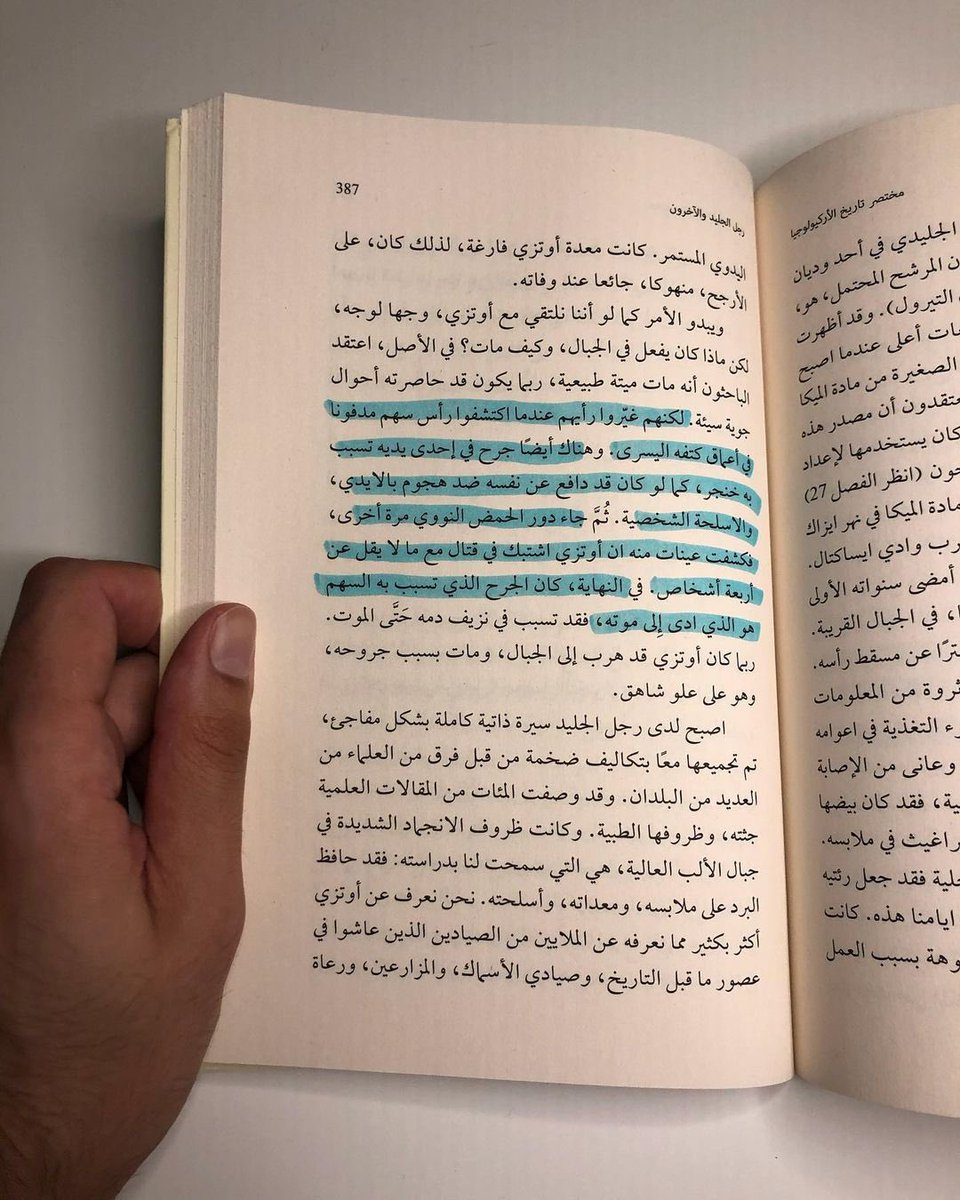 مختصر تاريخ الأركيولوجيا
الجليدي في أحد وديان
ن المرشح المحتمل، هو،
التيرول). وقد أظهرت
ات أعلى عندما اصبح
الصغيرة من مادة الميكا
عتقدون أن مصدر هذه
كان يستخدمها لإعداد
حون (انظر الفصل 27)
مادة الميكا في نهر ايزاك
رب وادي ايساكتال.
أمضى سنواته الأولى
ا، في الجبال القريبة.
ترًا عن مسقط رأسه.
ثروة من المعلومات
زء التغذية في اعوامه
وعانى من الإصابة
ية، فقد كان بيضها
راغيث في ملابسه.
حلية فقد جعل رئتيه
ايامنا هذه. كانت
وهة بسبب العمل
رجل الجليد والآخرون
387
اليدوي المستمر. كانت معدة أوتزي فارغة، لذلك كان، على
الأرجح، منهوكا، جائعا عند وفاته.
ويبدو الأمر كما لو أننا نلتقي مع أوتزي، وجها لوجه،
لكن ماذا كان يفعل في الجبال، وكيف مات؟ في الأصل، اعتقد
الباحثون أنه مات ميتة طبيعية، ربما يكون قد حاصرته أحوال
جوية سيئة. لكنهم غيّروا رأيهم عندما اكتشفوا رأس سهم مدفونا
في أعماق كتفه اليسرى. وهناك أيضًا جرح في إحدى يديه تسبب
به خنجر، كما لو كان قد دافع عن نفسه ضد هجوم بالايدي،
والاسلحة الشخصية. ثُمَّ جاء دور الحمض النووي مرة أخرى،
فكشفت عينات منه ان أوتزي اشتبك في قتال مع ما لا يقل عن
أربعة أشخاص. في النهاية، كان الجرح الذي تسبب به السهم
هو الذي ادى إلى موته، فقد تسبب في نزيف دمه حَتَّى الموت.
ربما كان أوتزي قد هرب إلى الجبال، ومات بسبب جروحه،
وهو على علو شاهق.
اصبح لدى رجل الجليد سيرة ذاتية كاملة بشكل مفاجئ،
تم تجميعها معًا بتكاليف ضخمة من قبل فرق من العلماء من
العديد من البلدان. وقد وصفت المئات من المقالات العلمية
جثته، وظروفها الطبية. وكانت ظروف الانجماد الشديدة في
جبال الألب العالية، هي التي سمحت لنا بدراسته: فقد حافظ
البرد على ملابسه، ومعداته، وأسلحته. نحن نعرف عن أوتزي
أكثر بكثير مما نعرفه عن الملايين من الصيادين الذين عاشوا في
عصور ما قبل التاريخ، وصيادي الأسماك، والمزارعين، ورعاة